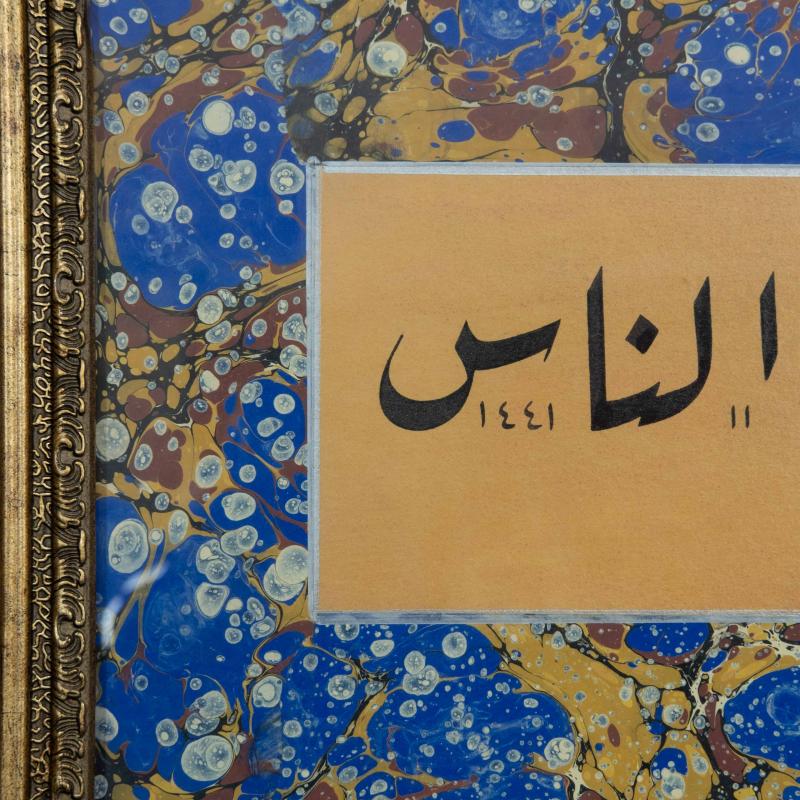 الناس
١١ ١٤٤١